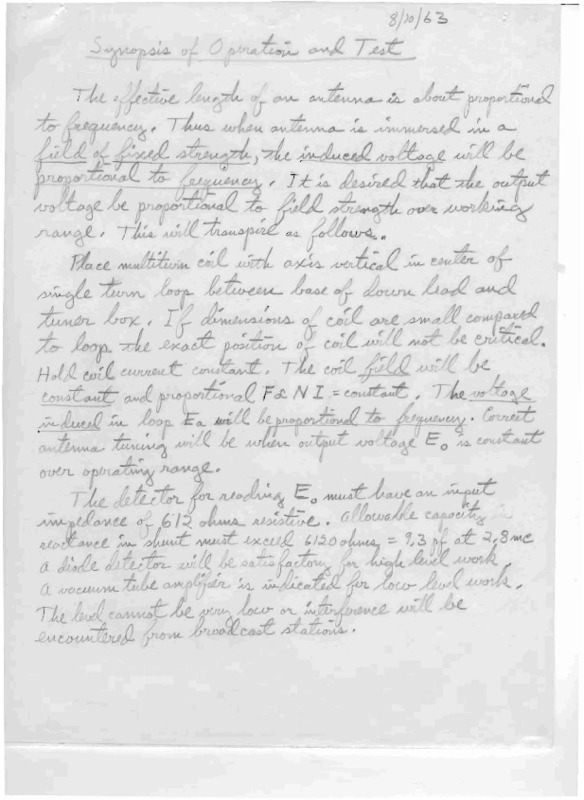 8/20/63
Synopsis of Operation and Test
The effective length of an antenna is about proportional
to frequency. Thus when antenna is immersed in a
field of fixed strength, the induced voltage will be
proportional to frequency. It is desired that the output
voltage be proportional to field strength over working
range. This will transpire as follows.
Place multiturn coil with axis vertical in center of
single turn loop between base of down lead and
tuner box. If dimensions of coil are small compared
to loop the exact position of coil will not be critical.
Hold coil current constant. The coil field will be
constant and proportional F & N I = constant. The voltage
induced in loop Ea will be proportional to frequency. Correct
antenna tuning will be when output voltage Eo is constant
over operating range.
The detector for reading Eo must have an input
impedance of 612 ohms resistive. Allowable capacity
reactance in shunt must exceed 6120 ohms = 9.3 pf at 2.8 mc
A diode detector will be satisfactory for high level work.
A vacuum tube amplifier is indicated for low level work.
The level cannot be very low or interference will be
encountered from broadcast stations.